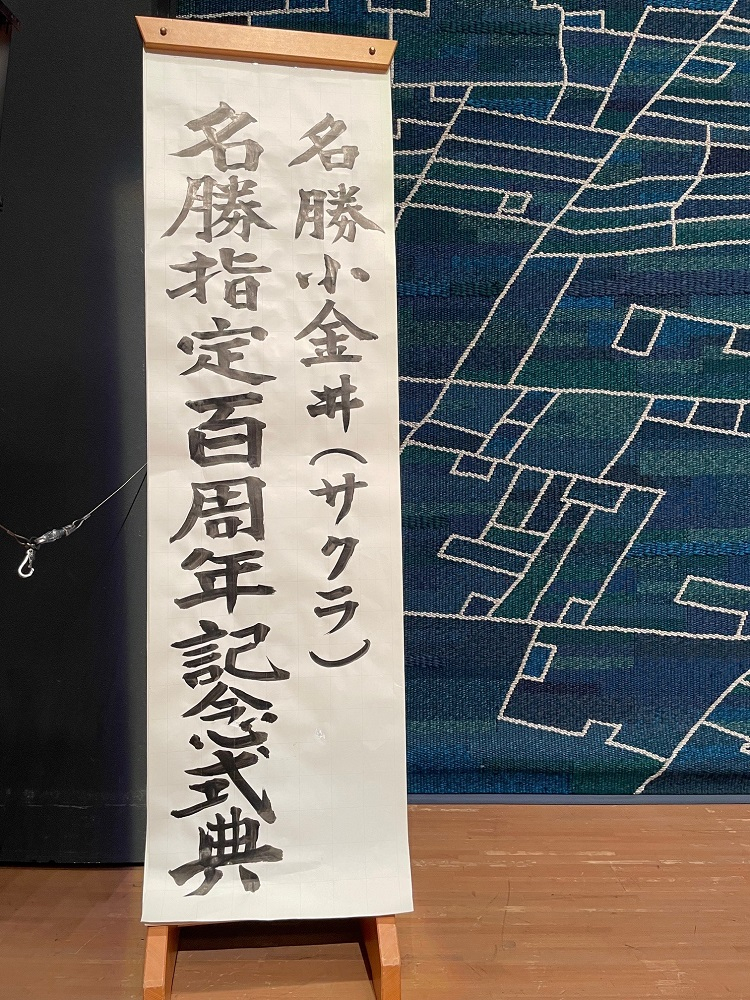 名勝小金井（サクラ）
名勝指定百周年記念式典